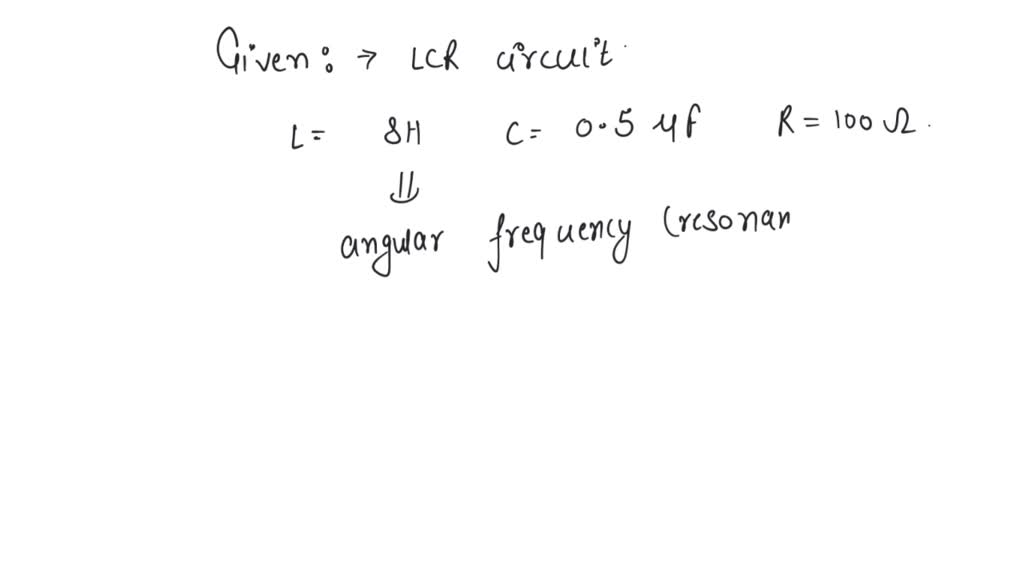 Given: → LCR circuit
L = 8H C = 0.5 μf R = 100 Ω.
⇓
angular frequency (resonan